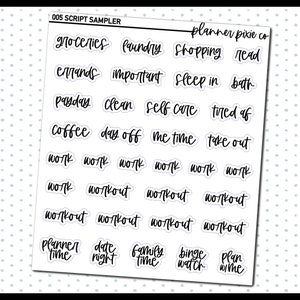 005 SCRIPT SAMPLER planner pixie co.
groceries laundry shopping read
errands important sleep in bath
payday clean self care tired af
coffee day off me time take out
work work work work work work
work workout workout workout
workout workout workout workout
planner time date night family time binge watch plan w/me